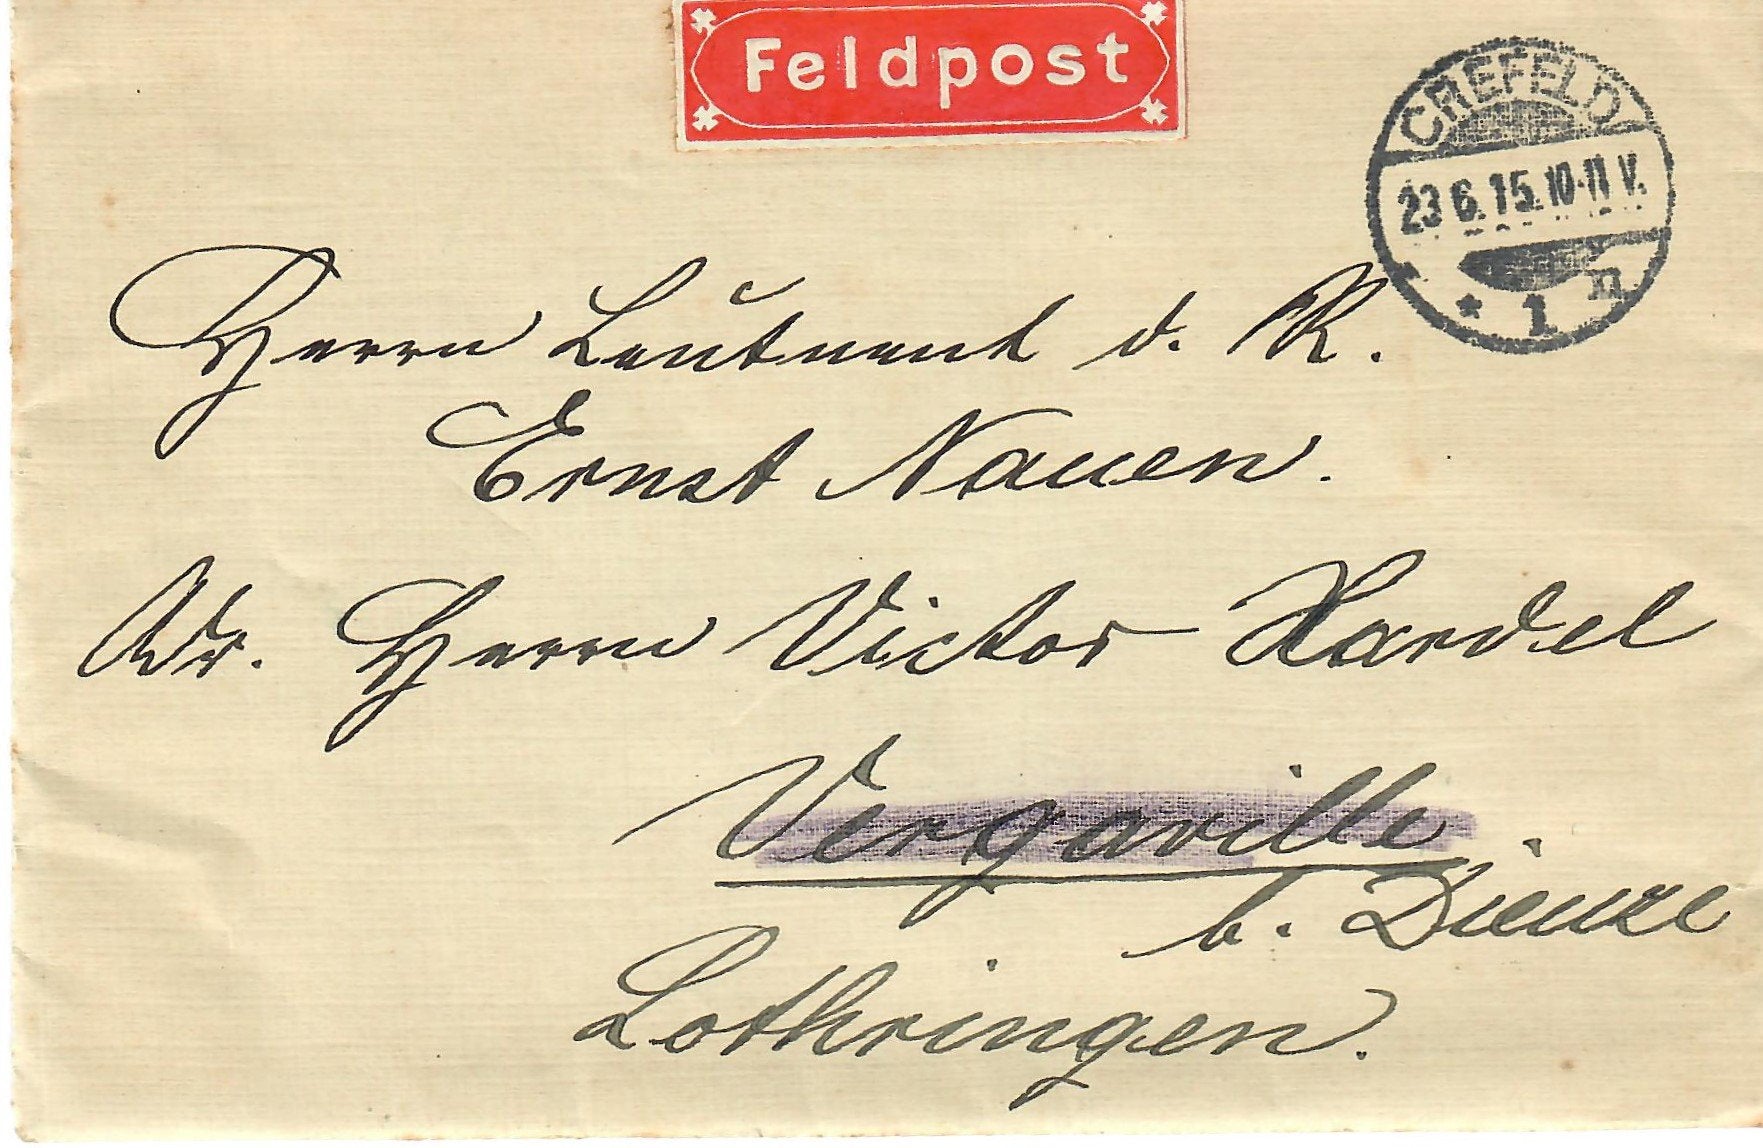 Feldpost
CREFELD
23 6.15.10-11 V.
* 1 n
Herrn Leutnant d. R.
Ernst Nauen.
Adr. Herrn Victor Hardel
Vergaville.
b. Dieuze
Lothringen.